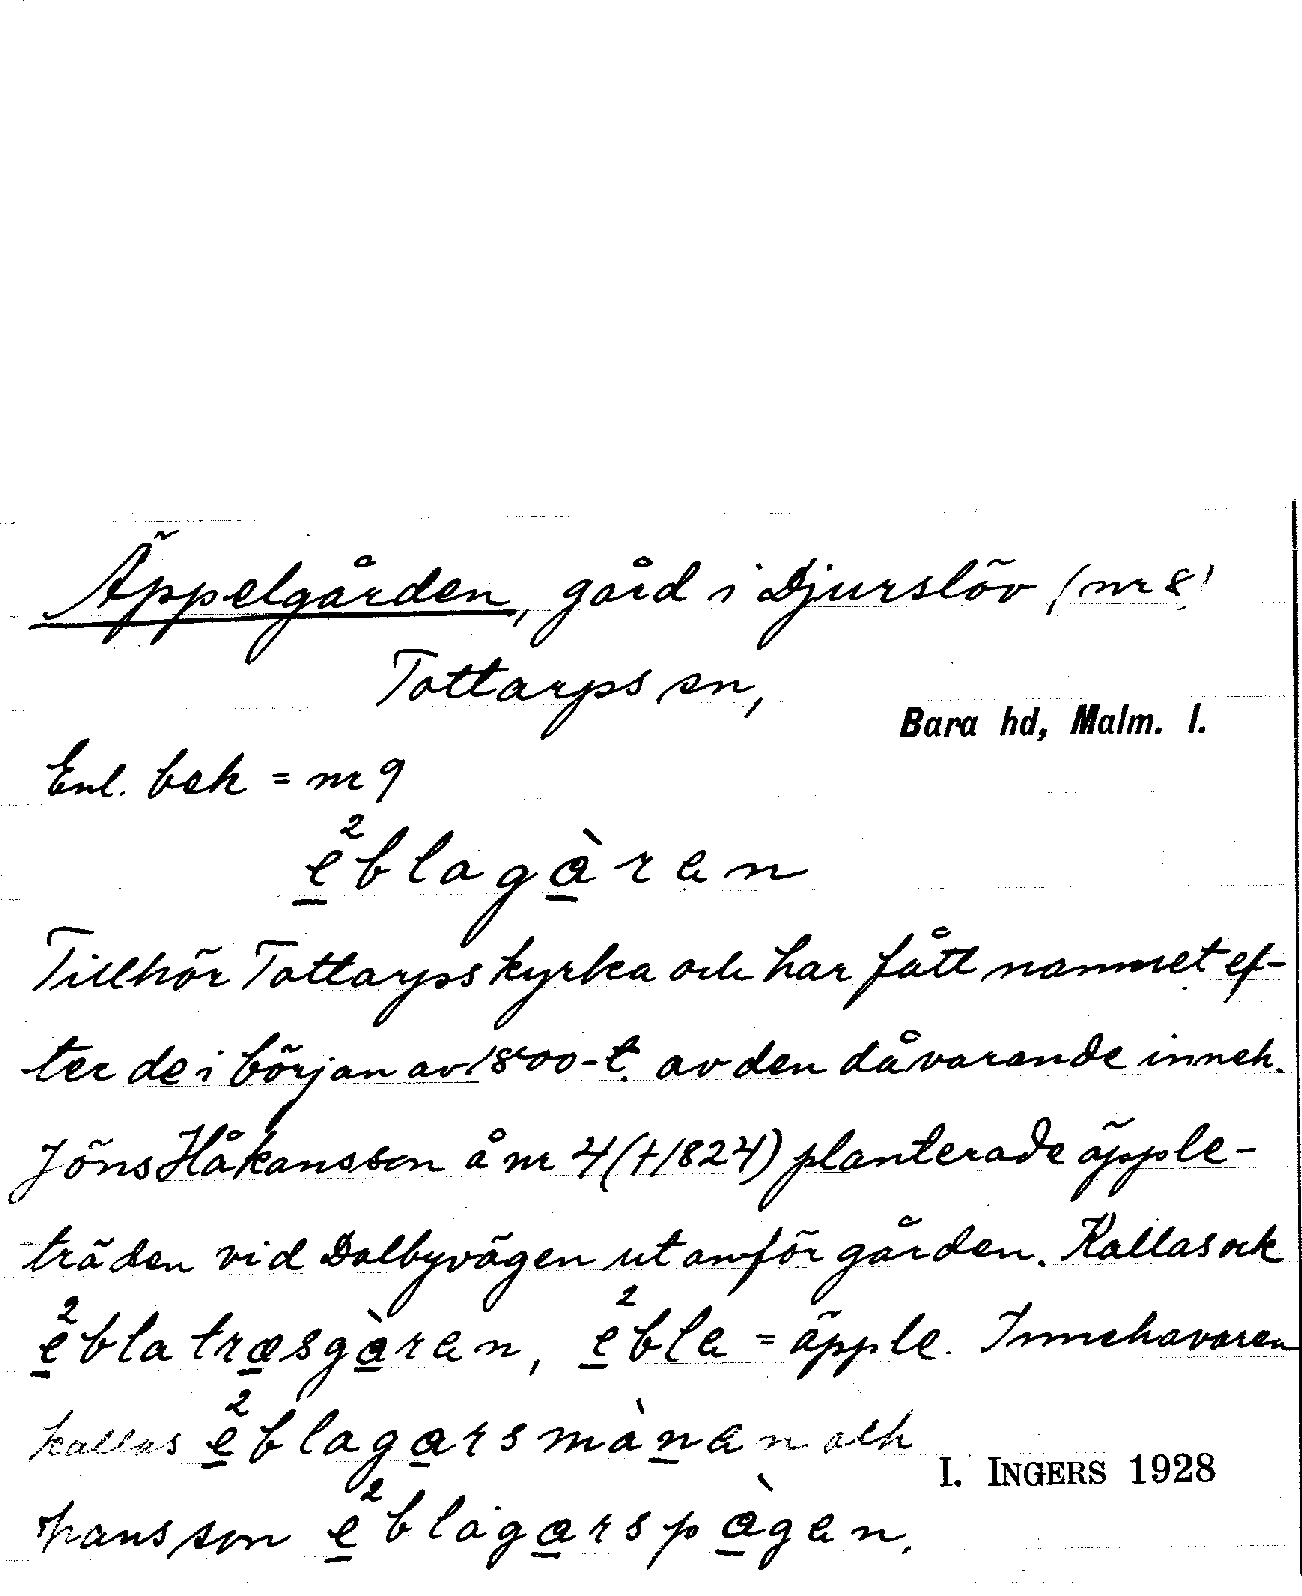 Äppelgården, gård i Djurslöv (nr 8)
Tottarps sn,
Bara hd, Malm. l.
Enl. bek = nr 9
e²blagàren
Tillhör Tottarps kyrka och har fått namnet ef-
ter de i början av 1800-t. av den dåvarande inneh.
Jöns Håkansson å nr 4 (†1824) planterade äpple-
träden vid Dalbyvägen utanför gården. Kallas ock
e²blatræsgàren, e²ble = äpple. Innehavaren
kallas e²blagarsmànen och
hans son e²blagarspàgen.
I. INGERS 1928